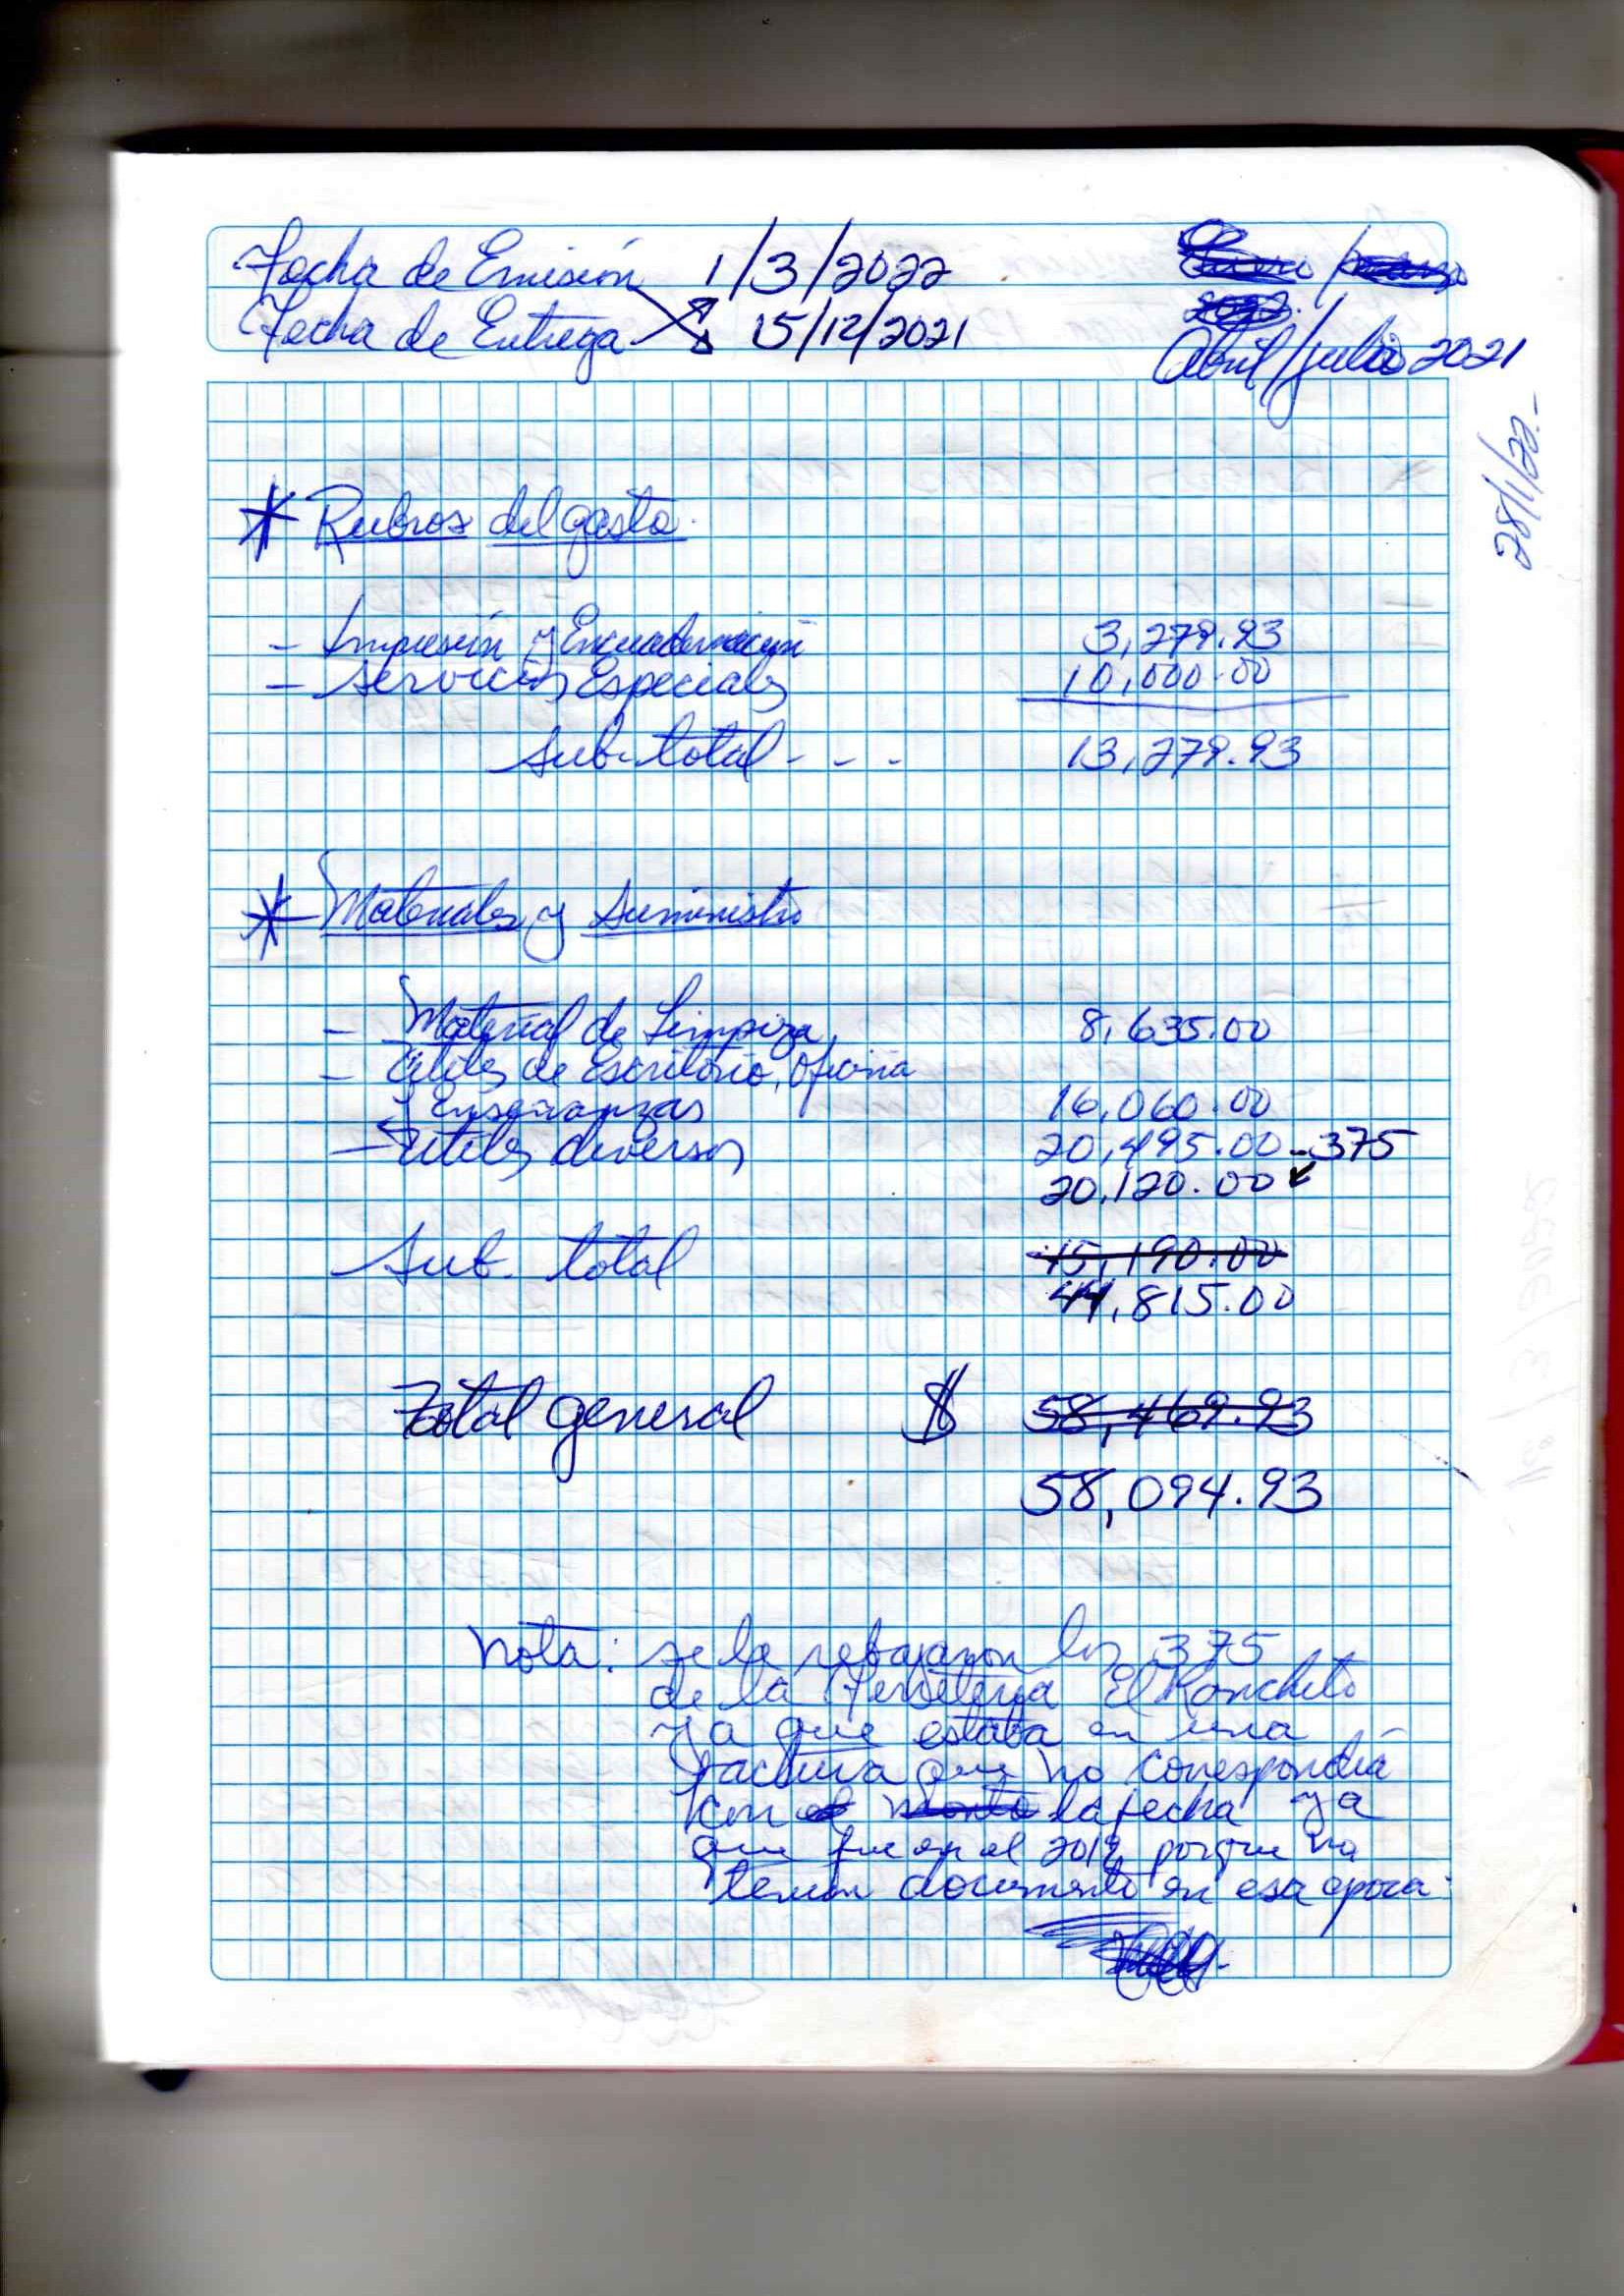 Fecha de Emisión 1/3/2022
Fecha de Entrega 15/12/2021
Abril/julio 2021
28/1/22.-
* Rubros del gasto.
- Impresión y Encuadernación 3,279.93
- Servicios Especiales 10,000.00
Sub-total - - - 13,279.93
* Materiales y Suministro
- Material de Limpiza 8,635.00
- Utiles de Escritorio, oficina
y Enseñanzas 16,060.00
- Utiles diversos 20,495.00 - 375
20,120.00
Sub. total 45,190.00
44,815.00
Total general $ 58,469.93
58,094.93
Nota: se le rebajaron los 375
de la Ferreteria El Ranchito
ya que estaba en una
factura que no correspondia
con el monto la fecha ya
que fue en el 2019, porque no
tenian documento en esa epoca.